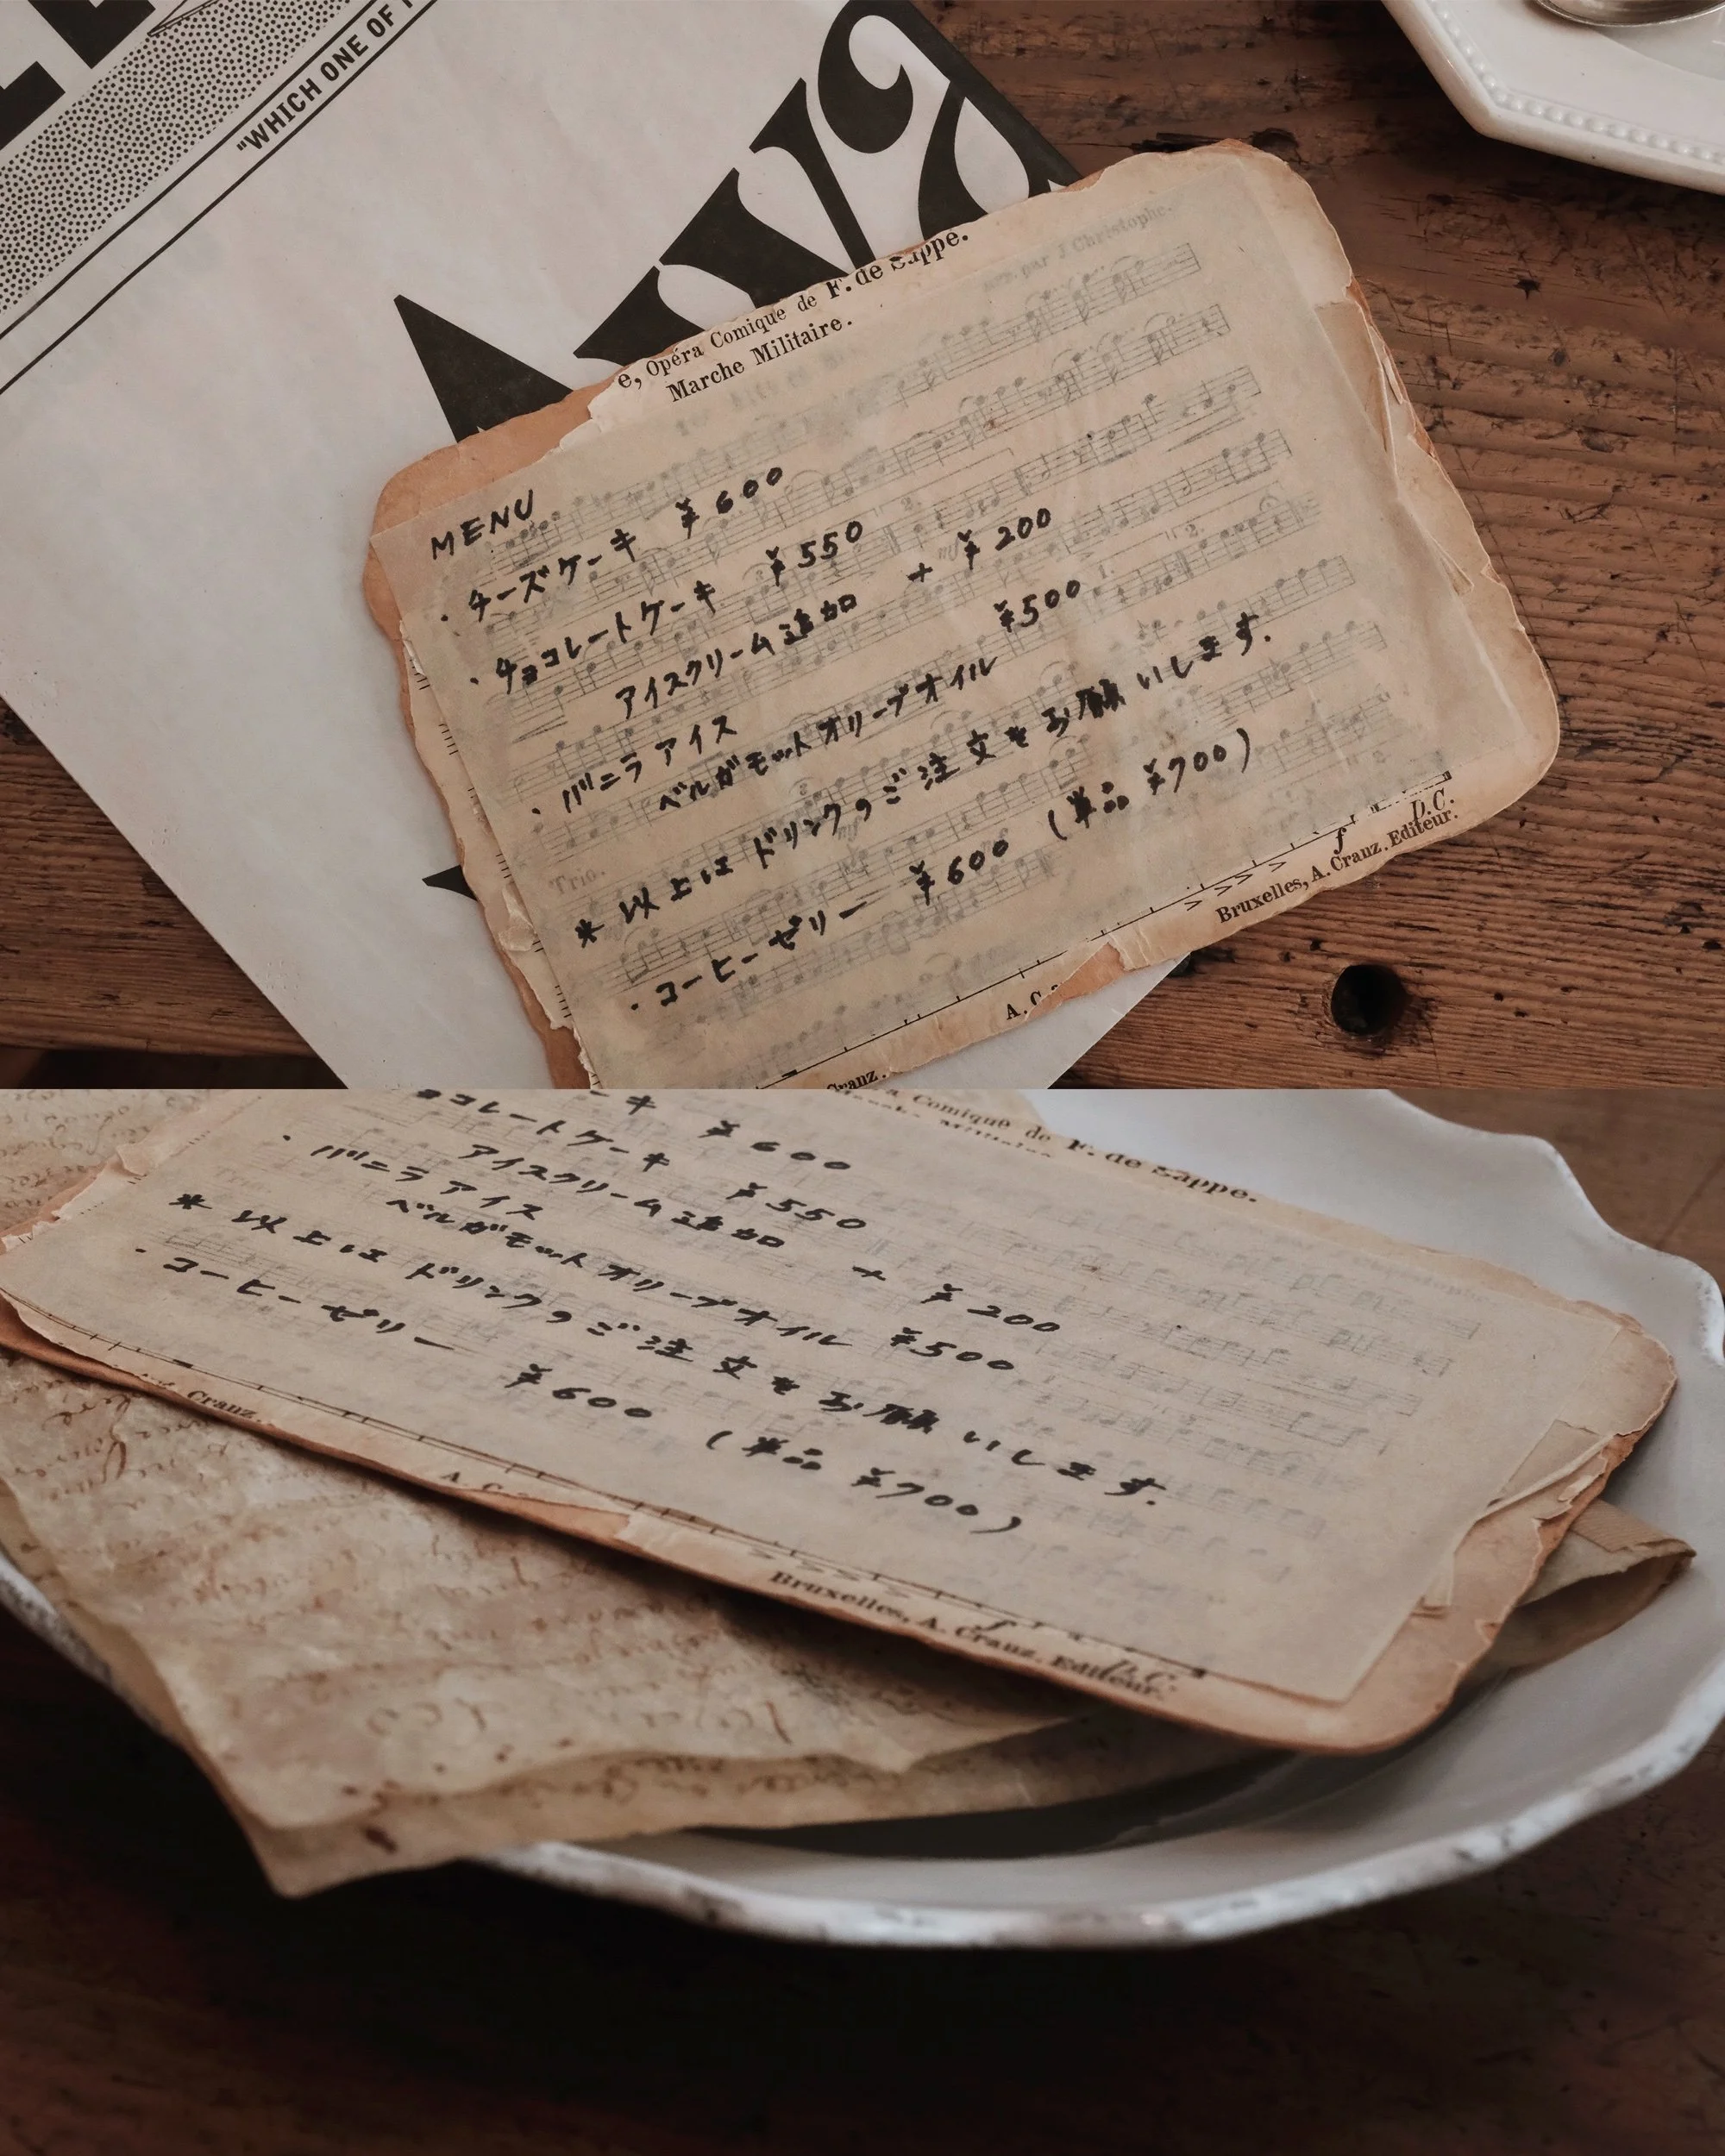 "WHICH ONE OF
e, Opéra Comique de F. de Suppe.
Marche Militaire.
arr. par J. Christophe.
MENU
・チーズケーキ ¥600
・チョコレートケーキ ¥550
アイスクリーム追加 + ¥200
・バニラアイス
ベルガモットオリーブオイル ¥500
* 以上は ドリンクのご注文をお願いします.
・コーヒーゼリー ¥600 (単品 ¥700)
Trio.
f D.C.
Bruxelles, A. Cranz. Editeur.
A. C
Cranz.
a Comique de F. de Suppe.
ーキ ¥600
ョコレートケーキ ¥550
アイスクリーム追加 + ¥200
・バニラアイス
ベルガモットオリーブオイル ¥500
* 以上は ドリンクのご注文をお願いします.
・コーヒーゼリー ¥600 (単品 ¥700)
Cranz.
A. C
f D.C.
Bruxelles, A. Cranz. Editeur.